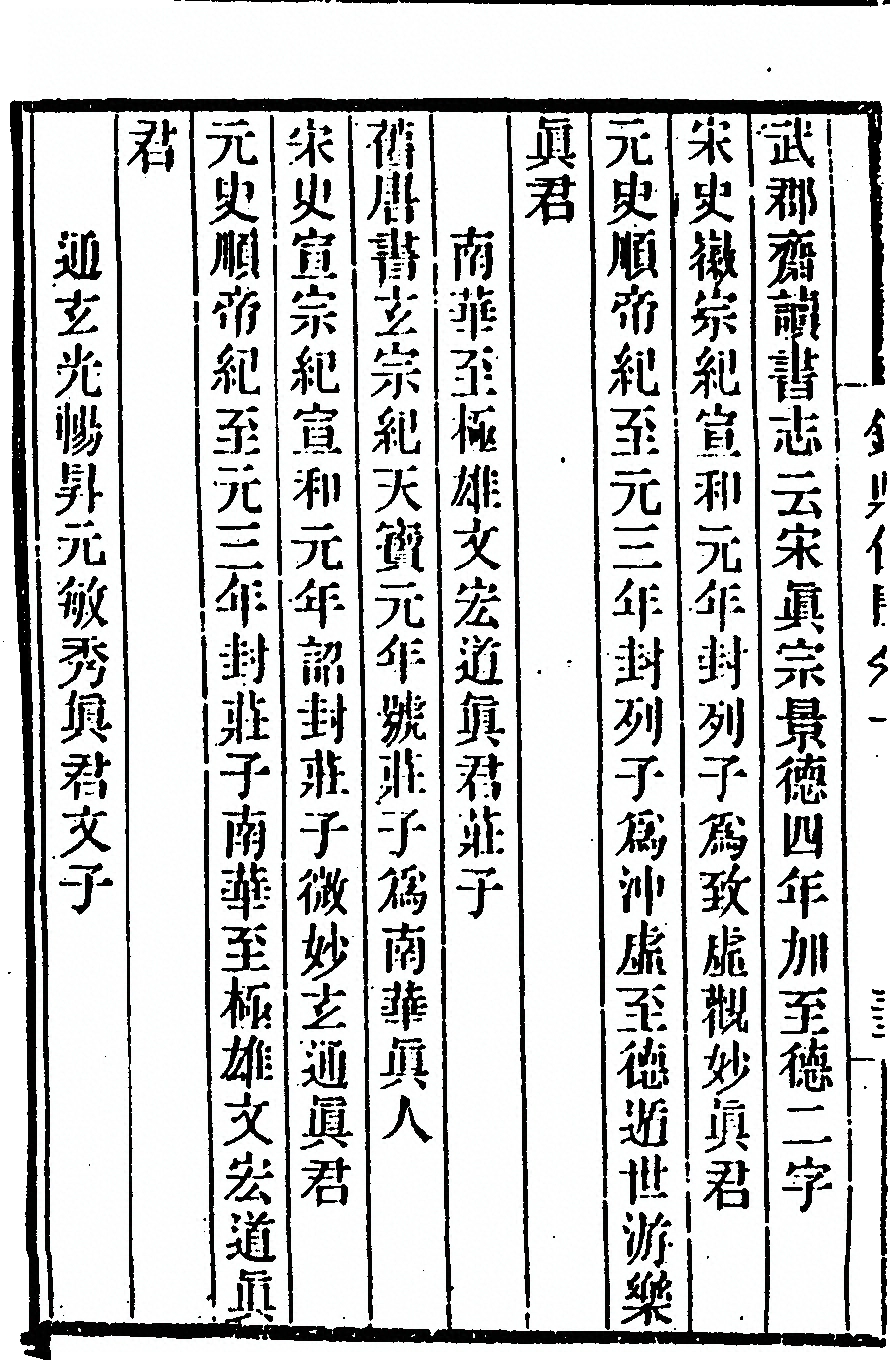 武郡齋讀書志云宋眞宗景德四年加至德二字
宋史徽宗紀宣和元年封列子爲致虛觀妙眞君
元史順帝紀至元三年封列子爲沖虛至德遁世游樂
眞君
南華至極雄文宏道眞君莊子
舊唐書玄宗紀天寶元年號莊子爲南華眞人
宋史宣宗紀宣和元年詔封莊子微妙玄通眞君
元史順帝紀至元三年封莊子南華至極雄文宏道眞
君
通玄光暢昇元敏秀眞君文子